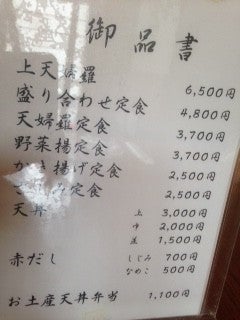 御品書
上天婦羅 6,500円
盛り合わせ定食 4,800円
天婦羅定食 3,700円
野菜揚定食 3,700円
かき揚げ定食 2,500円
み定食 2,500円
天丼 上 3,000円
中 2,000円
並 1,500円
赤だし しじみ 700円
なめこ 500円
お土産天丼弁当 1,100円